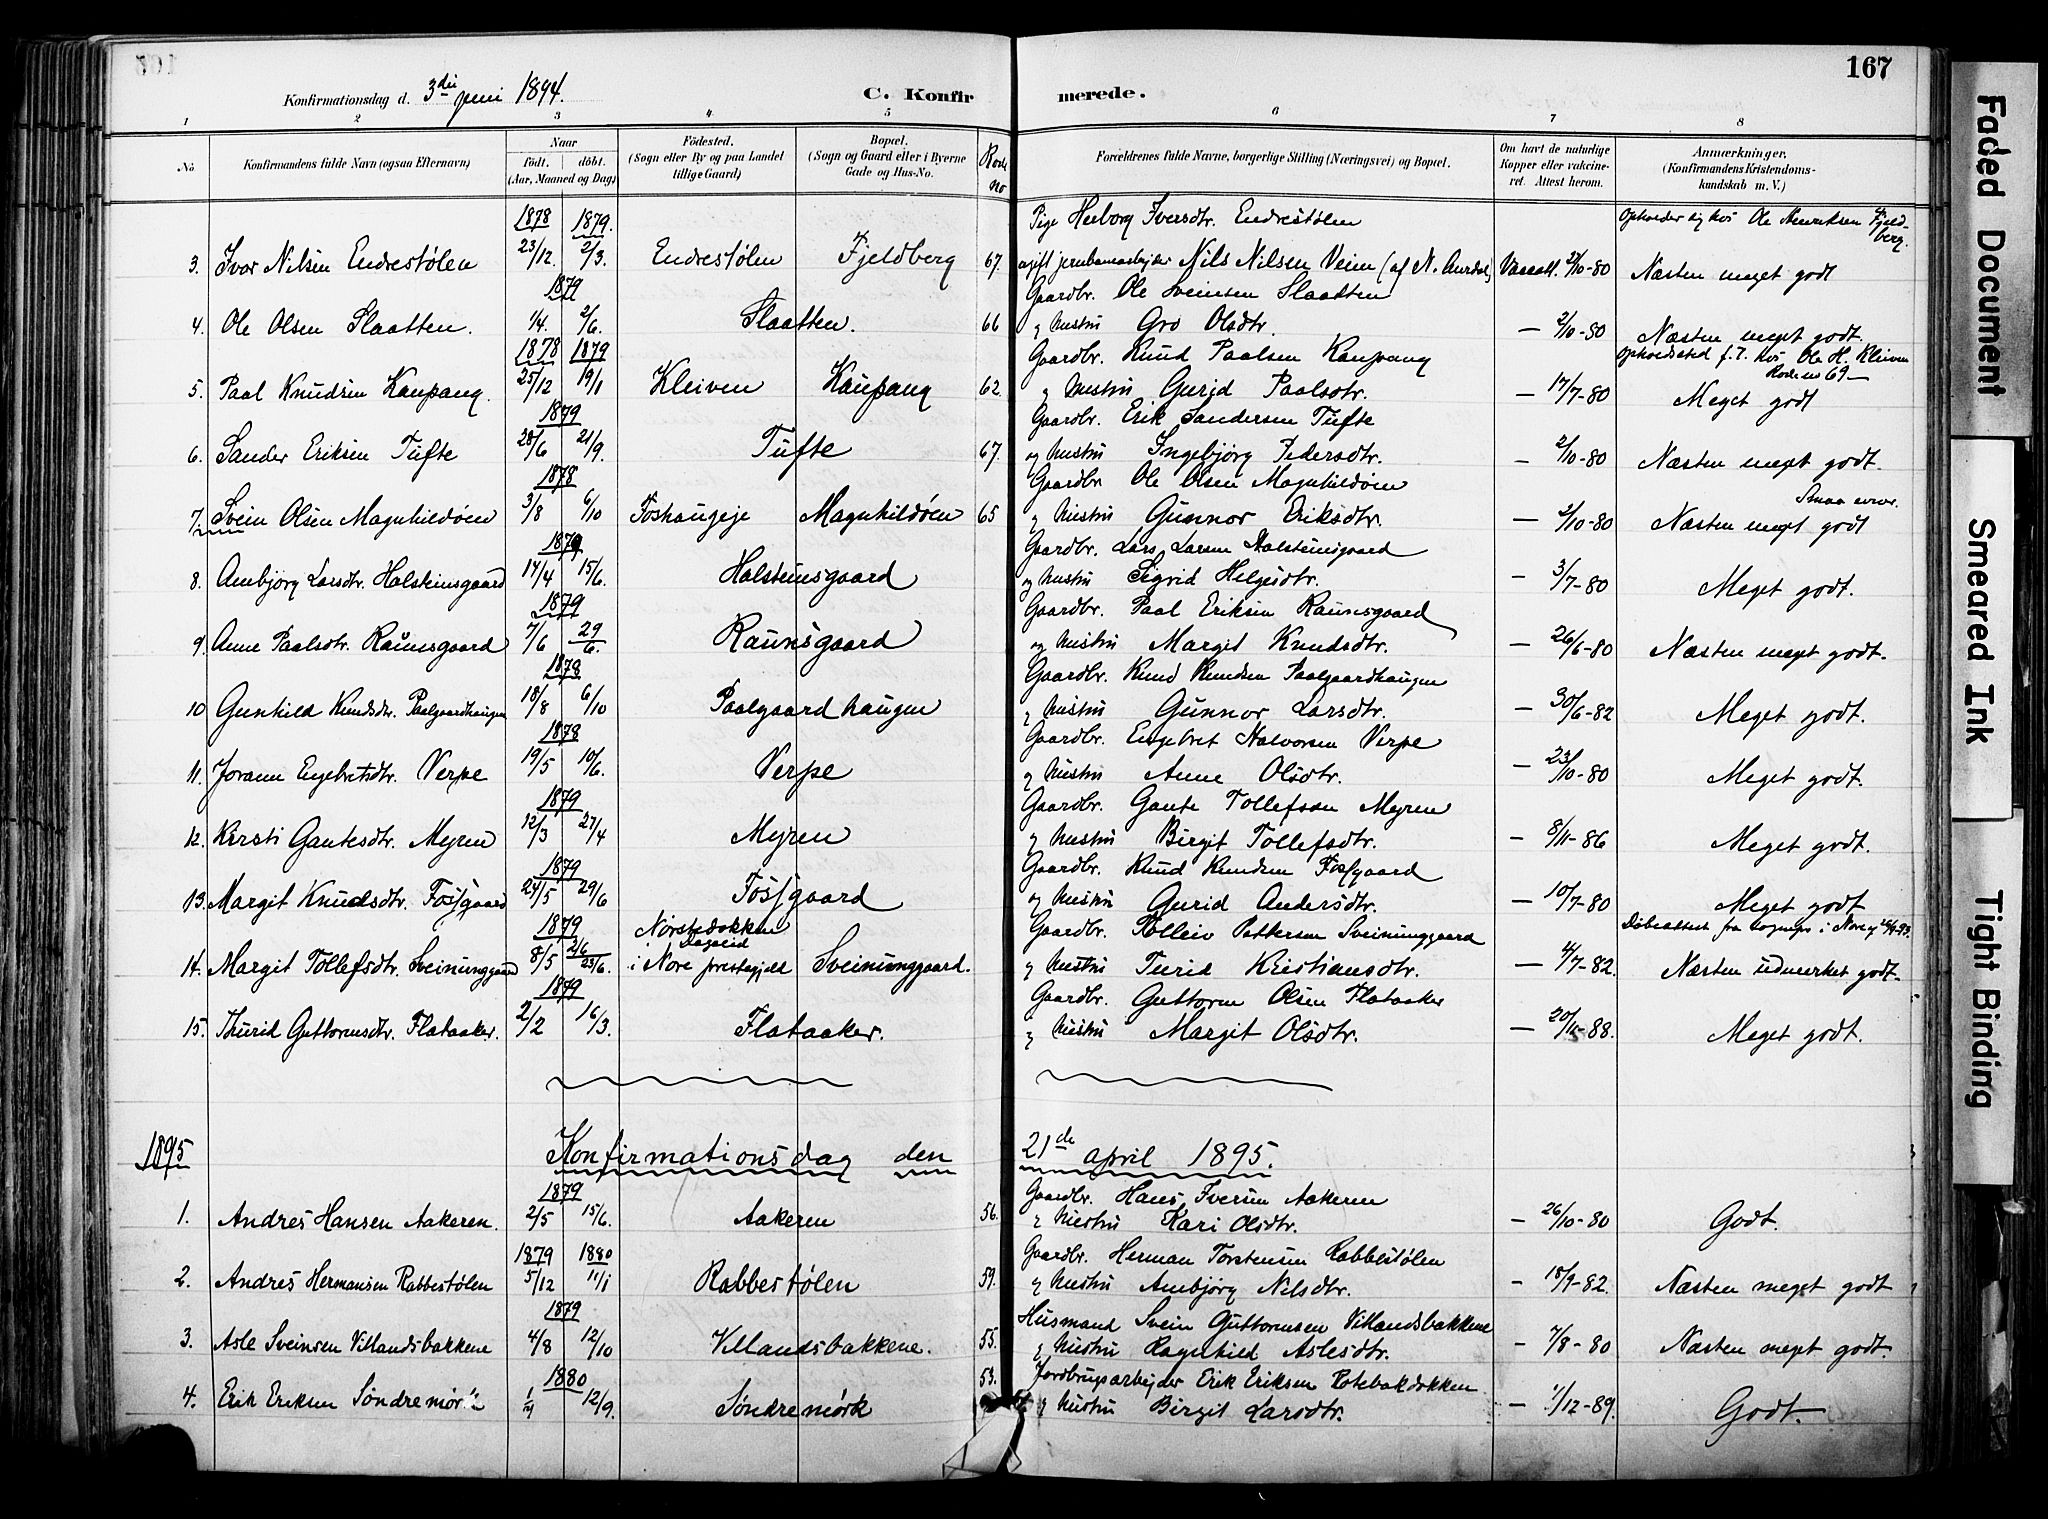 167
Konfirmationsdag d. 3die juni 1894.
C. Konfirmerede.
1 2 3 4 5 6 7 8
No. Konfirmandens fulde Navn (ogsaa Efternavn) Naar födt. döbt. (Aar, Maaned og Dag) Födested. (Sogn eller By og paa Landet tillige Gaard) Bopæl. (Sogn og Gaard eller i Byerne Gade og Hus-No. Rode no Forældrenes fulde Navne, borgerlige Stilling (Næringsvei) og Bopæl. Om havt de naturlige Kopper eller vakcineret. Attest herom. Anmærkninger. (Konfirmandens Kristendomskundskab m. V.)
1878 1879. Pige Herborg Iversdtr. Endrestølen Opholder sig hos Ole Henriksen Fjeldberg.
3. Ivar Nilsen Endrestølen 23/12. 2/3. Endrestølen Fjeldberg 67. ugift jernbanearbejder Nils Nilsen Veim (af N. Aurdal) Vaccatt. 2/10-80 Næsten meget godt
1879 Gaardbr. Ole Sveinsen Slaatten
4. Ole Olsen Slaatten. 1/4. 2/6. Slaatten. 66 og Hustru Gro Olsdtr. — 2/10-80 Næsten meget godt.
1878 1879 Gaardbr. Knud Paalsen Kaupang Opholdssted f.T. hos Ole H. Kleiven Rode no 69—
5. Paal Knudsen Kaupang. 25/12 19/1 Kleiven Kaupang 62 og Hustru Gurid Paalsdtr. — 17/7-80 Meget godt
1879 Gaardbr. Erik Sandersen Tufte
6. Sander Eriksen Tufte 28/6 21/9. Tufte 67. og Hustru Ingebjørg Pedersdtr. — 2/10-80 Næsten meget godt.
1878 Gaardbr. Ole Olsen Magnhildøen Smaa evner.
7. Svein Olsen Magnhildøen 3/8 6/10 Foshaugeje Magnhildøen 65 og Hustru Gunnor Eriksdtr. — 2/10-80 Næsten meget godt
1879 Gaardbr. Lars Larsen Holsteinsgaard
8. Ambjørg Larsdtr. Holsteinsgaard 17/4 15/6. Holsteinsgaard og Hustru Sigrid Helgesdtr. — 3/7-80 Meget godt.
1879 Gaardbr. Paal Eriksen Raunsgaard
9. Anne Paalsdtr. Raunsgaard 7/6 29/6. Raunsgaard og Hustru Margit Knudsdtr. — 26/6-80 Næsten meget godt.
1878 Gaardbr. Knud Knudsen Paalgaardhaugen
10 Gunhild Knudsdtr. Paalgaardhaugen 18/8 6/10 Paalgaardhaugen og Hustru Gunnor Larsdtr. — 30/6-82 Meget godt.
1878 Gaardbr. Engebret Halvorsen Verpe
11. Jorann Engebretsdtr. Verpe 19/5 10/6. Verpe og Hustru Anne Olsdtr. — 23/10-80 Meget godt.
1879 Gaardbr. Gaute Tollefsen Myren
12. Kersti Gautesdtr. Myren 12/3 27/4 Myren og Hustru Birgit Tollefsdtr. — 8/11-86 Meget godt.
1879 Gaardbr. Knud Knudsen Fossgaard
13. Margit Knudsdtr. Fossgaard 24/5 29/6 Fossgaard og Hustru Gurid Andersdtr. — 10/7-80 Meget godt
1879 Norstedokken Gaardbr. Tolleiv Pettersen Sveinunggaard Døbeattest fra Sognepr. i Nore
14. Margit Tollefsdtr. Sveinunggaard 8/5 2/6 25/6. Dagalid i Nore prestegjeld Sveinunggaard. og Hustru Turid Kristiansdtr. — 4/7-82. Næsten udmerket godt.
1879 Gaardbr. Guttorm Olsen Flataaker
15. Thurid Guttormsdtr. Flataaker. 2/2 16/3. Flataaker. og Hustru Margit Olsdtr. — 20/11-88. Meget godt.
1895 Konfirmationsdag den 21de april 1895.
1879 Gaardbr. Hans Iversen Aakeren
1. Andres Hansen Aakeren. 2/5 15/6. Aakeren 56. og Hustru Kari Olsdtr. — 26/10-80 Godt.
1879 1880 Gaardbr. Herman Torstensen Rabbestølen
2. Andres Hermansen Rabbestølen 5/12 11/1 Rabbestølen 59. og Hustru Ambjørg Nilsdtr. — 18/9-82. Næsten meget godt
1879 Husmand Svein Guttormsen Villandsbakkene
3. Asle Sveinsen Villandsbakkene 4/8 12/10 Villandsbakkene. 55. og Hustru Ragnhild Aslesdtr. — 7/8-80 Næsten meget godt.
1880 53. Jordbrugsarbejder Erik Eriksen Rotebakdokken
4. Erik Eriksen Søndremørk 12/9. Søndremørk og Hustru Birgit Larsdtr. — 1/12-89. Godt.
Faded Document
Smeared Ink
Tight Binding